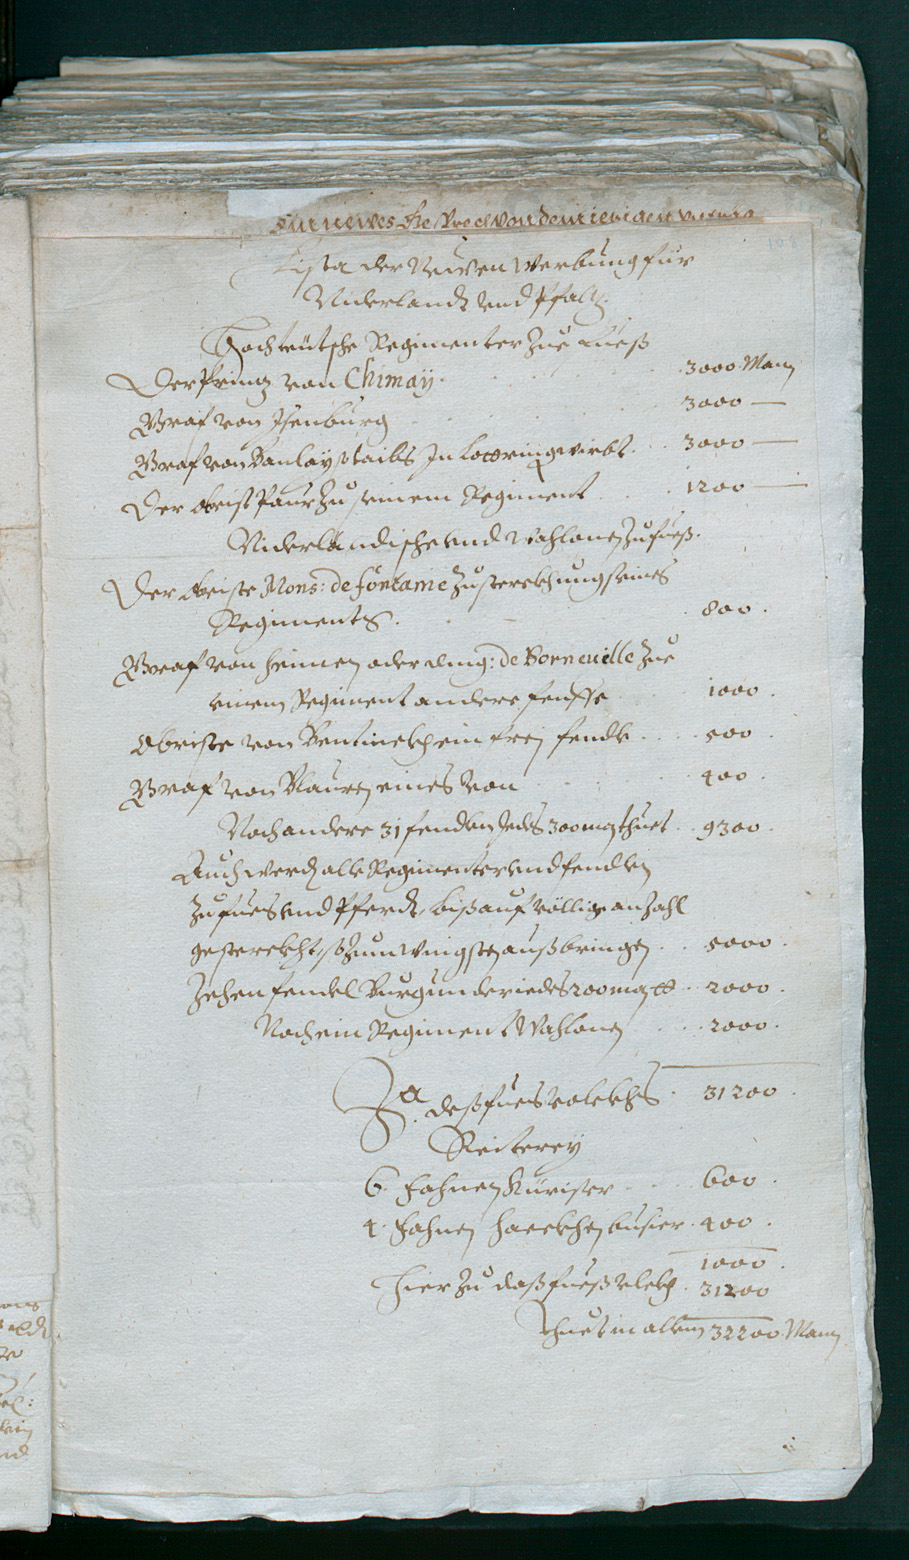 108
Lista der Neuwen Werbung für
Niderlandt vnd Pfaltz.
Hochteütsche Regimenter zue Fueß
Der Printz von Chimay. 3000 Mann
Graf von Isenburg 3000 —
Graf von In Lottringen wirbt. 3000 —
Der Obrist Paur zu seinem Regiment 1200 —
Niderländische vnd Wahlonen zu fueß.
Der Obriste Mons: de fontaine zu sterckhung seines
Regiments. 800.
Graf von Heinnen oder Mons: de Bornenille zue
einem Regiment andere 1000.
Obriste von Bentinckh ein frey fendl 500.
Graf von eines von 400.
Noch andere 31 fendlen Jedes 300 man thuet 9300.
Auch werden alle Regimenter vnd fendlen
zu fues vnd Pferdt, biß auf völlige anzahl
gesterckht, so zum wenigsten außbringen 5000.
Zehen fendel Burgunder iedes 200 man 2000.
Noch ein Regiment Wahlonen 2000.
Sa. deß fues volckhs 31200.
Reiterey
6. Fahnen Kürisser 600.
4. Fahnen harckhenbusier 400.
1000.
Hierzu daß fueß volckh 31200
Thuet in allem 32200 Mann